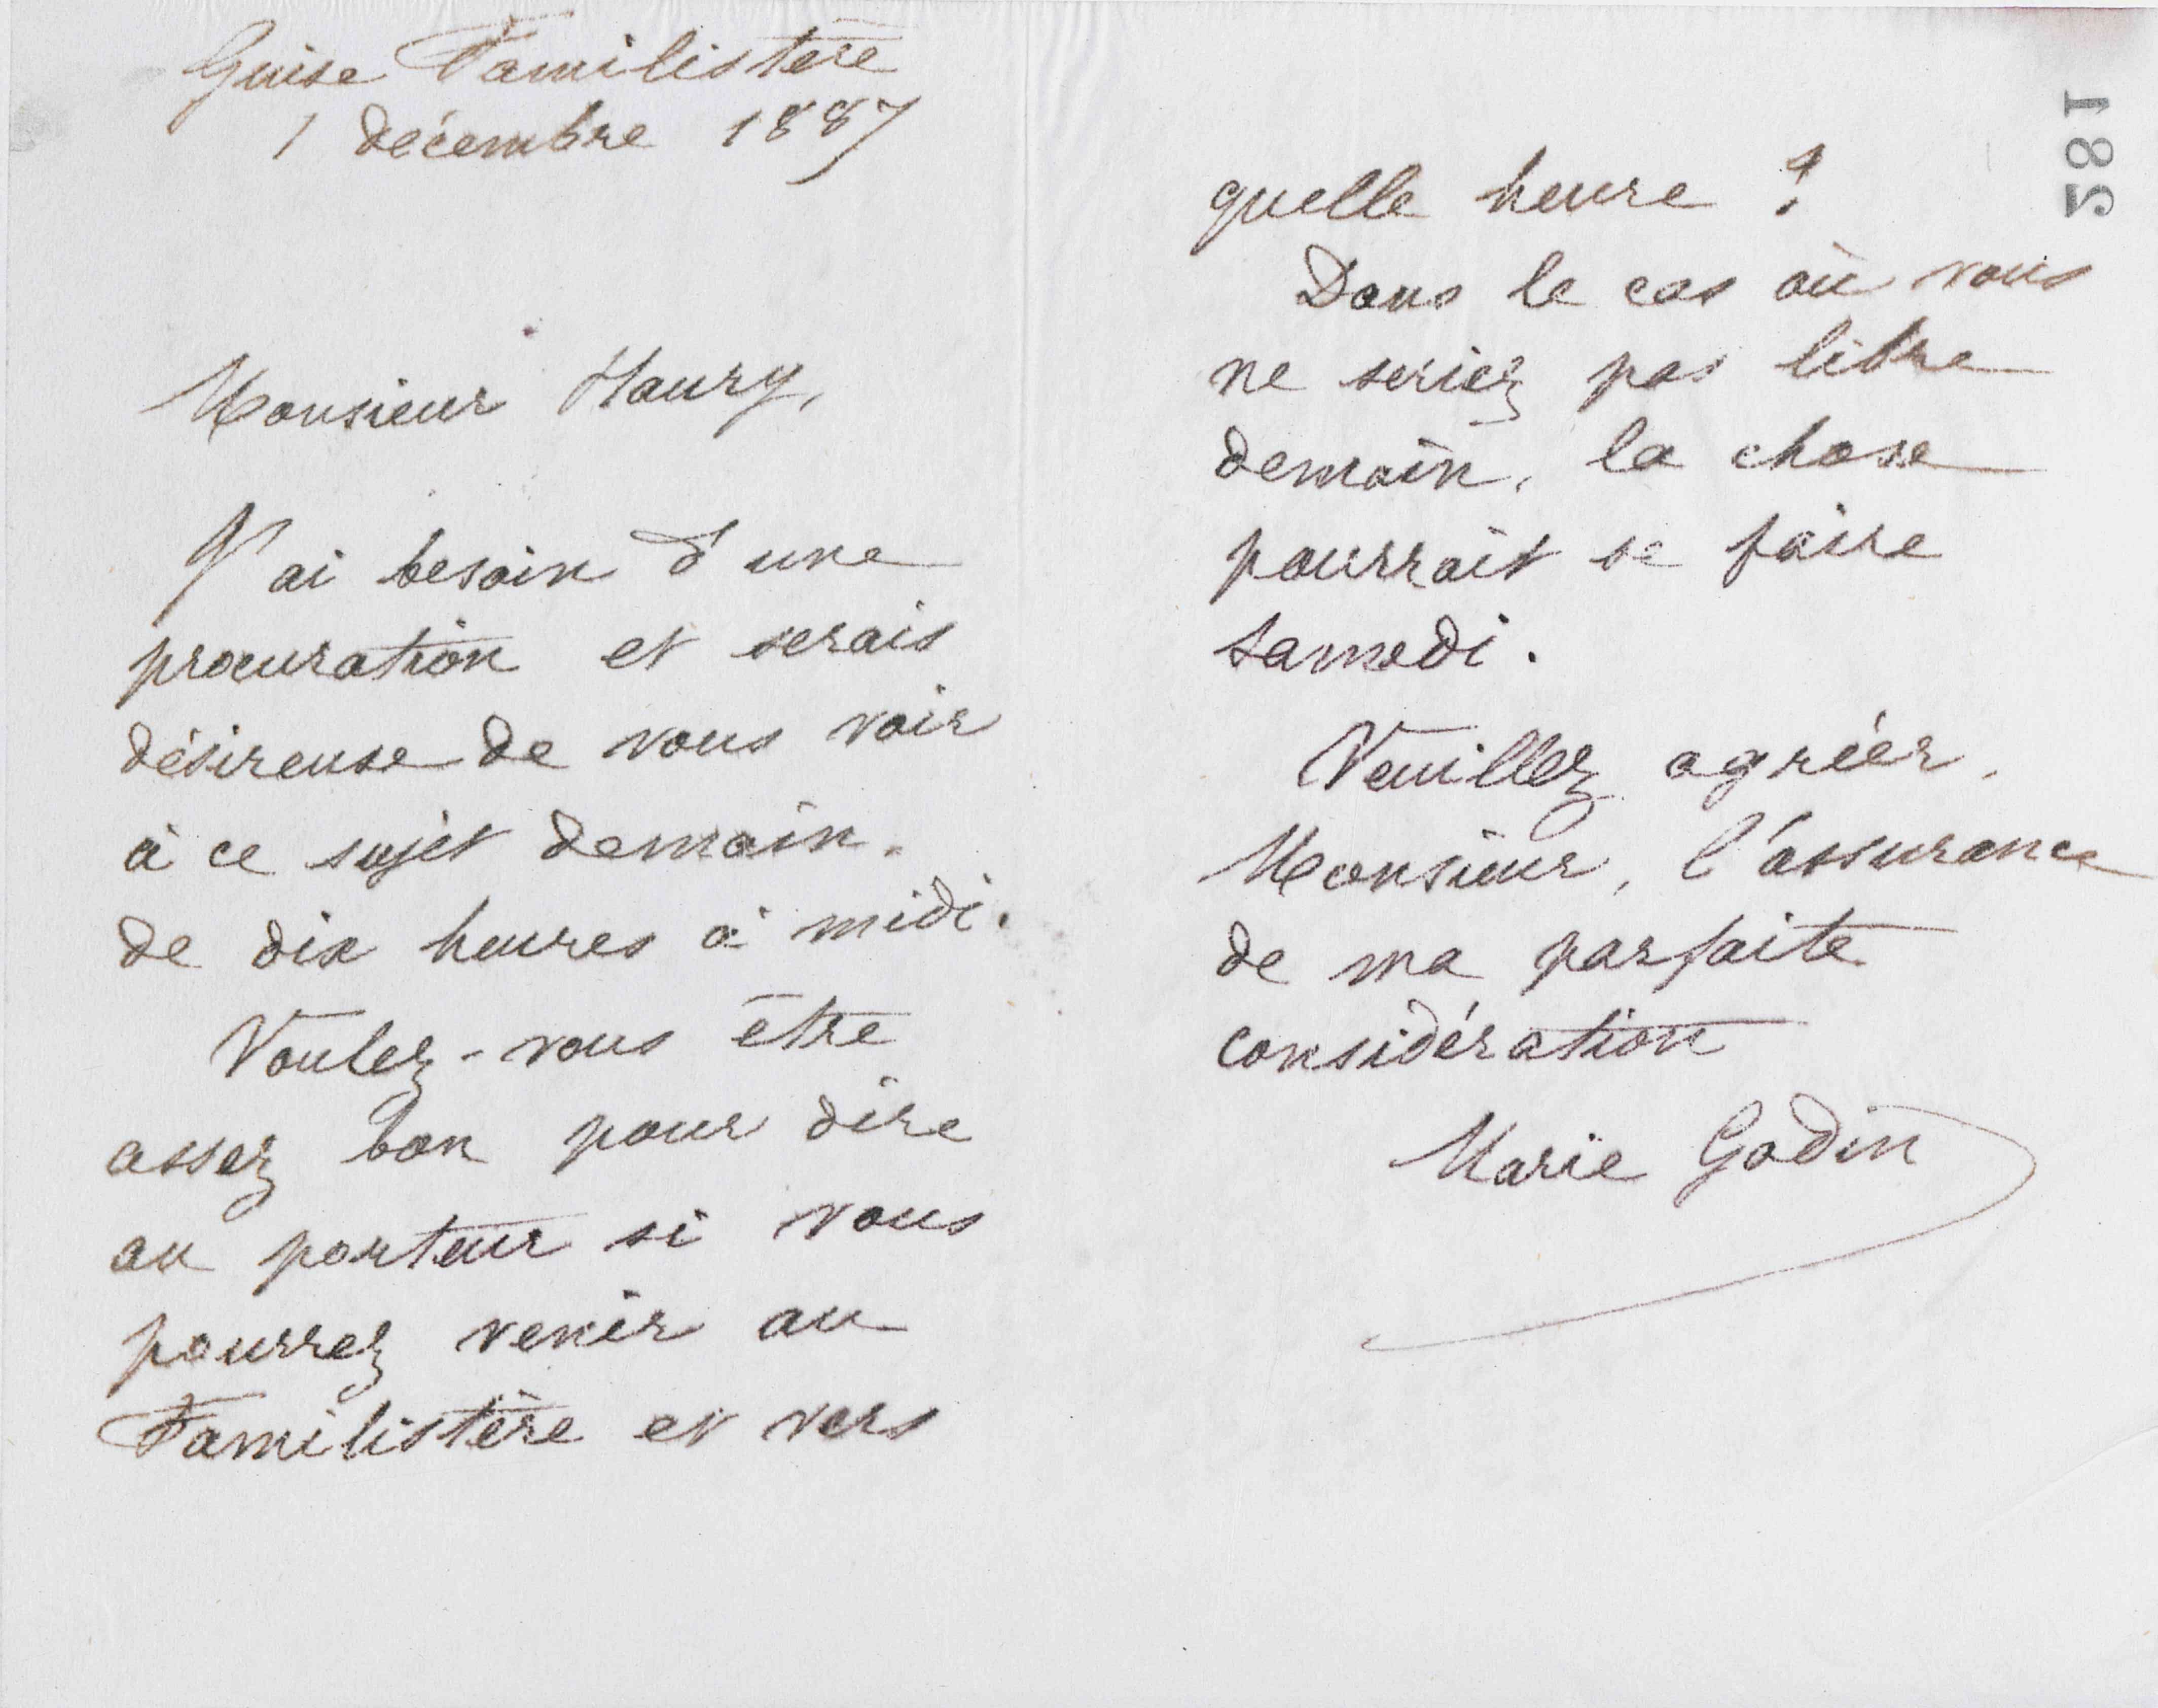 Guise Familistère
1 décembre 1887
Monsieur Haury,
J'ai besoin d'une
procuration et serais
désireuse de vous voir
à ce sujet demain.
de dix heures à midi.
Voulez-vous être
assez bon pour dire
au porteur si vous
pourrez venir au
Familistère et vers
182
quelle heure ?
Dans le cas où vous
ne seriez pas libre
demain, la chose
pourrait se faire
samedi.
Veuillez agréer,
Monsieur, l'assurance
de ma parfaite
considération
Marie Godin